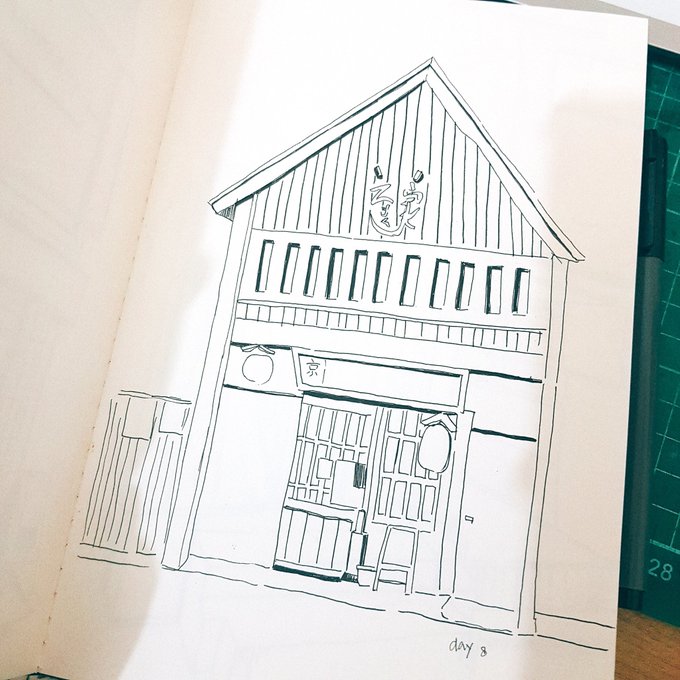 京
day 8
28